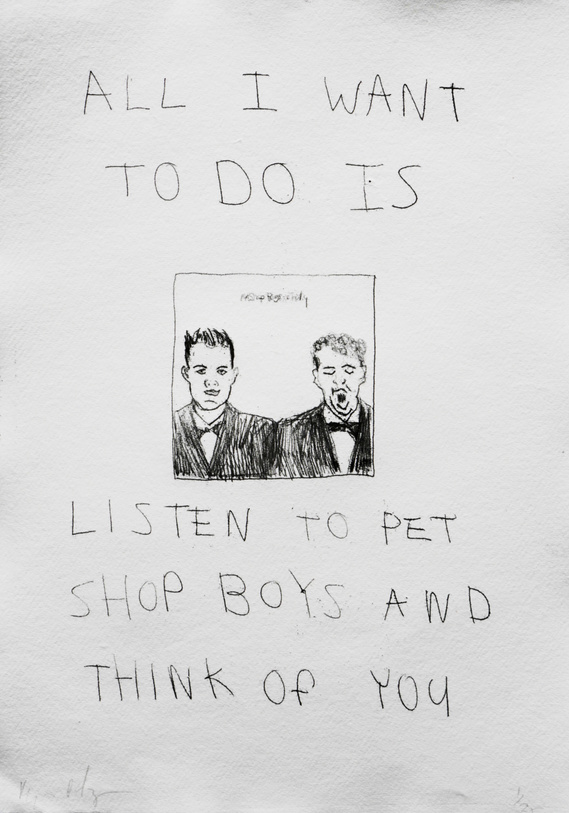 ALL I WANT
TO DO IS
LISTEN TO PET
SHOP BOYS AND
THINK OF YOU